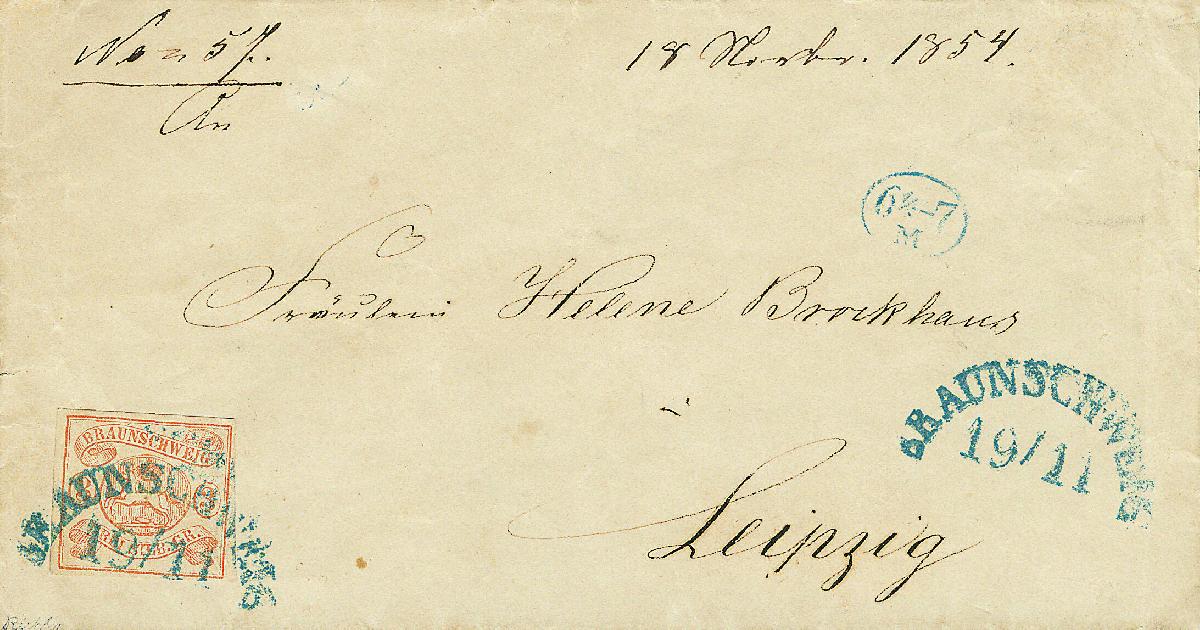 No = 57.
18 Novbr. 1854.
An
6½-7
M
Fräulein Helene Brockhaus
BRAUNSCHWEIG
19/11
Leipzig
BRAUNSCHWEIG
BRAUNSCHWEIG
19/11